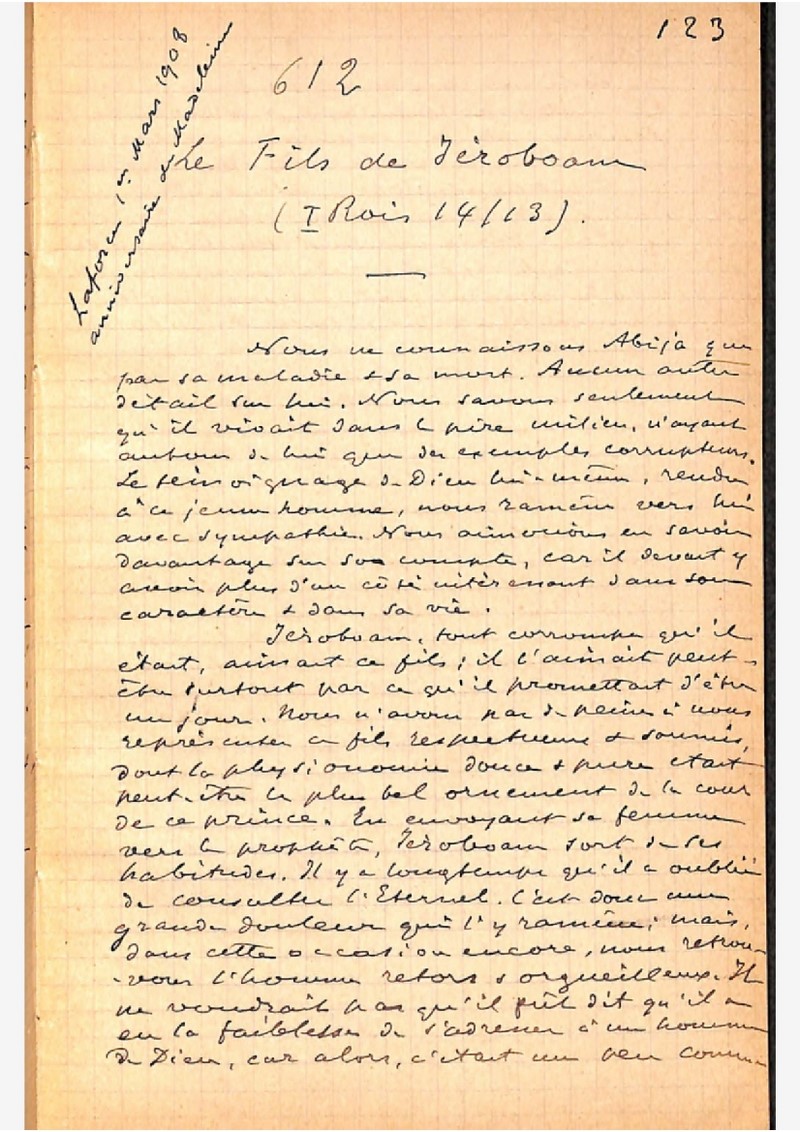 123
612
Laforce 1er Mars 1908
anniversaire de Madeleine
Le Fils de Jéroboam
(I Rois 14/13).
Nous ne connaissons Abija que
par sa maladie & sa mort. Aucun autre
détail sur lui. Nous savons seulement
qu'il vivait dans le pire milieu, n'ayant
autour de lui que des exemples corrupteurs.
Le témoignage de Dieu lui-même, rendu
à ce jeune homme, nous ramène vers lui
avec sympathie. Nous aimerions en savoir
davantage sur son compte, car il devait y
avoir plus d'un côté intéressant dans son
caractère & dans sa vie.
Jéroboam, tout corrompu qu'il
était, aimait ce fils ; il l'aimait peut-
être surtout par ce qu'il promettait d'être
un jour. Nous n'avons pas de peine à nous
représenter ce fils respectueux & soumis,
dont la physionomie douce & pure était
peut-être le plus bel ornement de la cour
de ce prince. En envoyant sa femme
vers le prophète, Jéroboam sort de ses
habitudes. Il y a longtemps qu'il a oublié
de consulter l'Eternel. C'est donc une
grande douleur qui l'y ramène ; mais,
dans cette occasion encore, nous retrou-
-vons l'homme retors & orgueilleux. Il
ne voudrait pas qu'il fût dit qu'il a
eu la faiblesse de s'adresser à un homme
de Dieu, car alors, c'était un peu comme